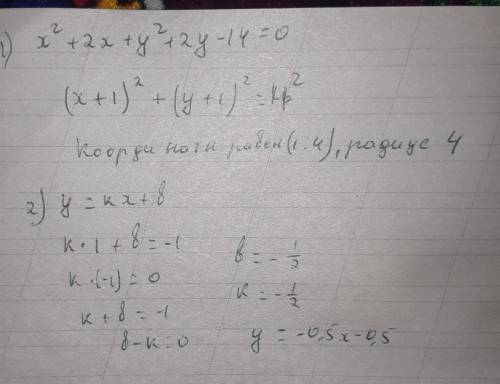 1) x² + 2x + y² + 2y - 14 = 0
(x + 1)² + (y + 1)² = 4²
Координаты равен (1:4), радиус 4
2) y = kx + b
k · 1 + b = -1
b = -1/2
k · (-1) = 0
k = -1/2
k + b = -1
b - k = 0
y = -0,5x - 0,5